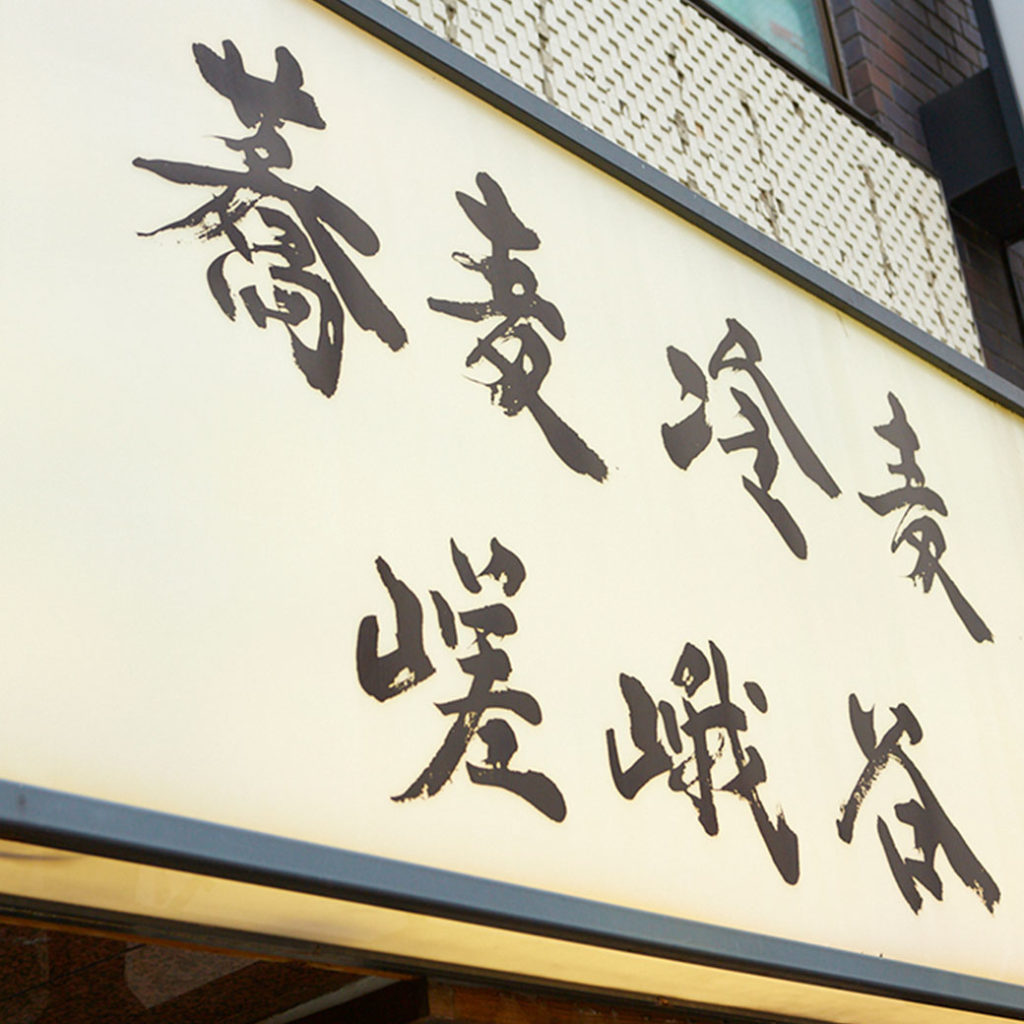 蕎麦冷麦
嵯峨谷